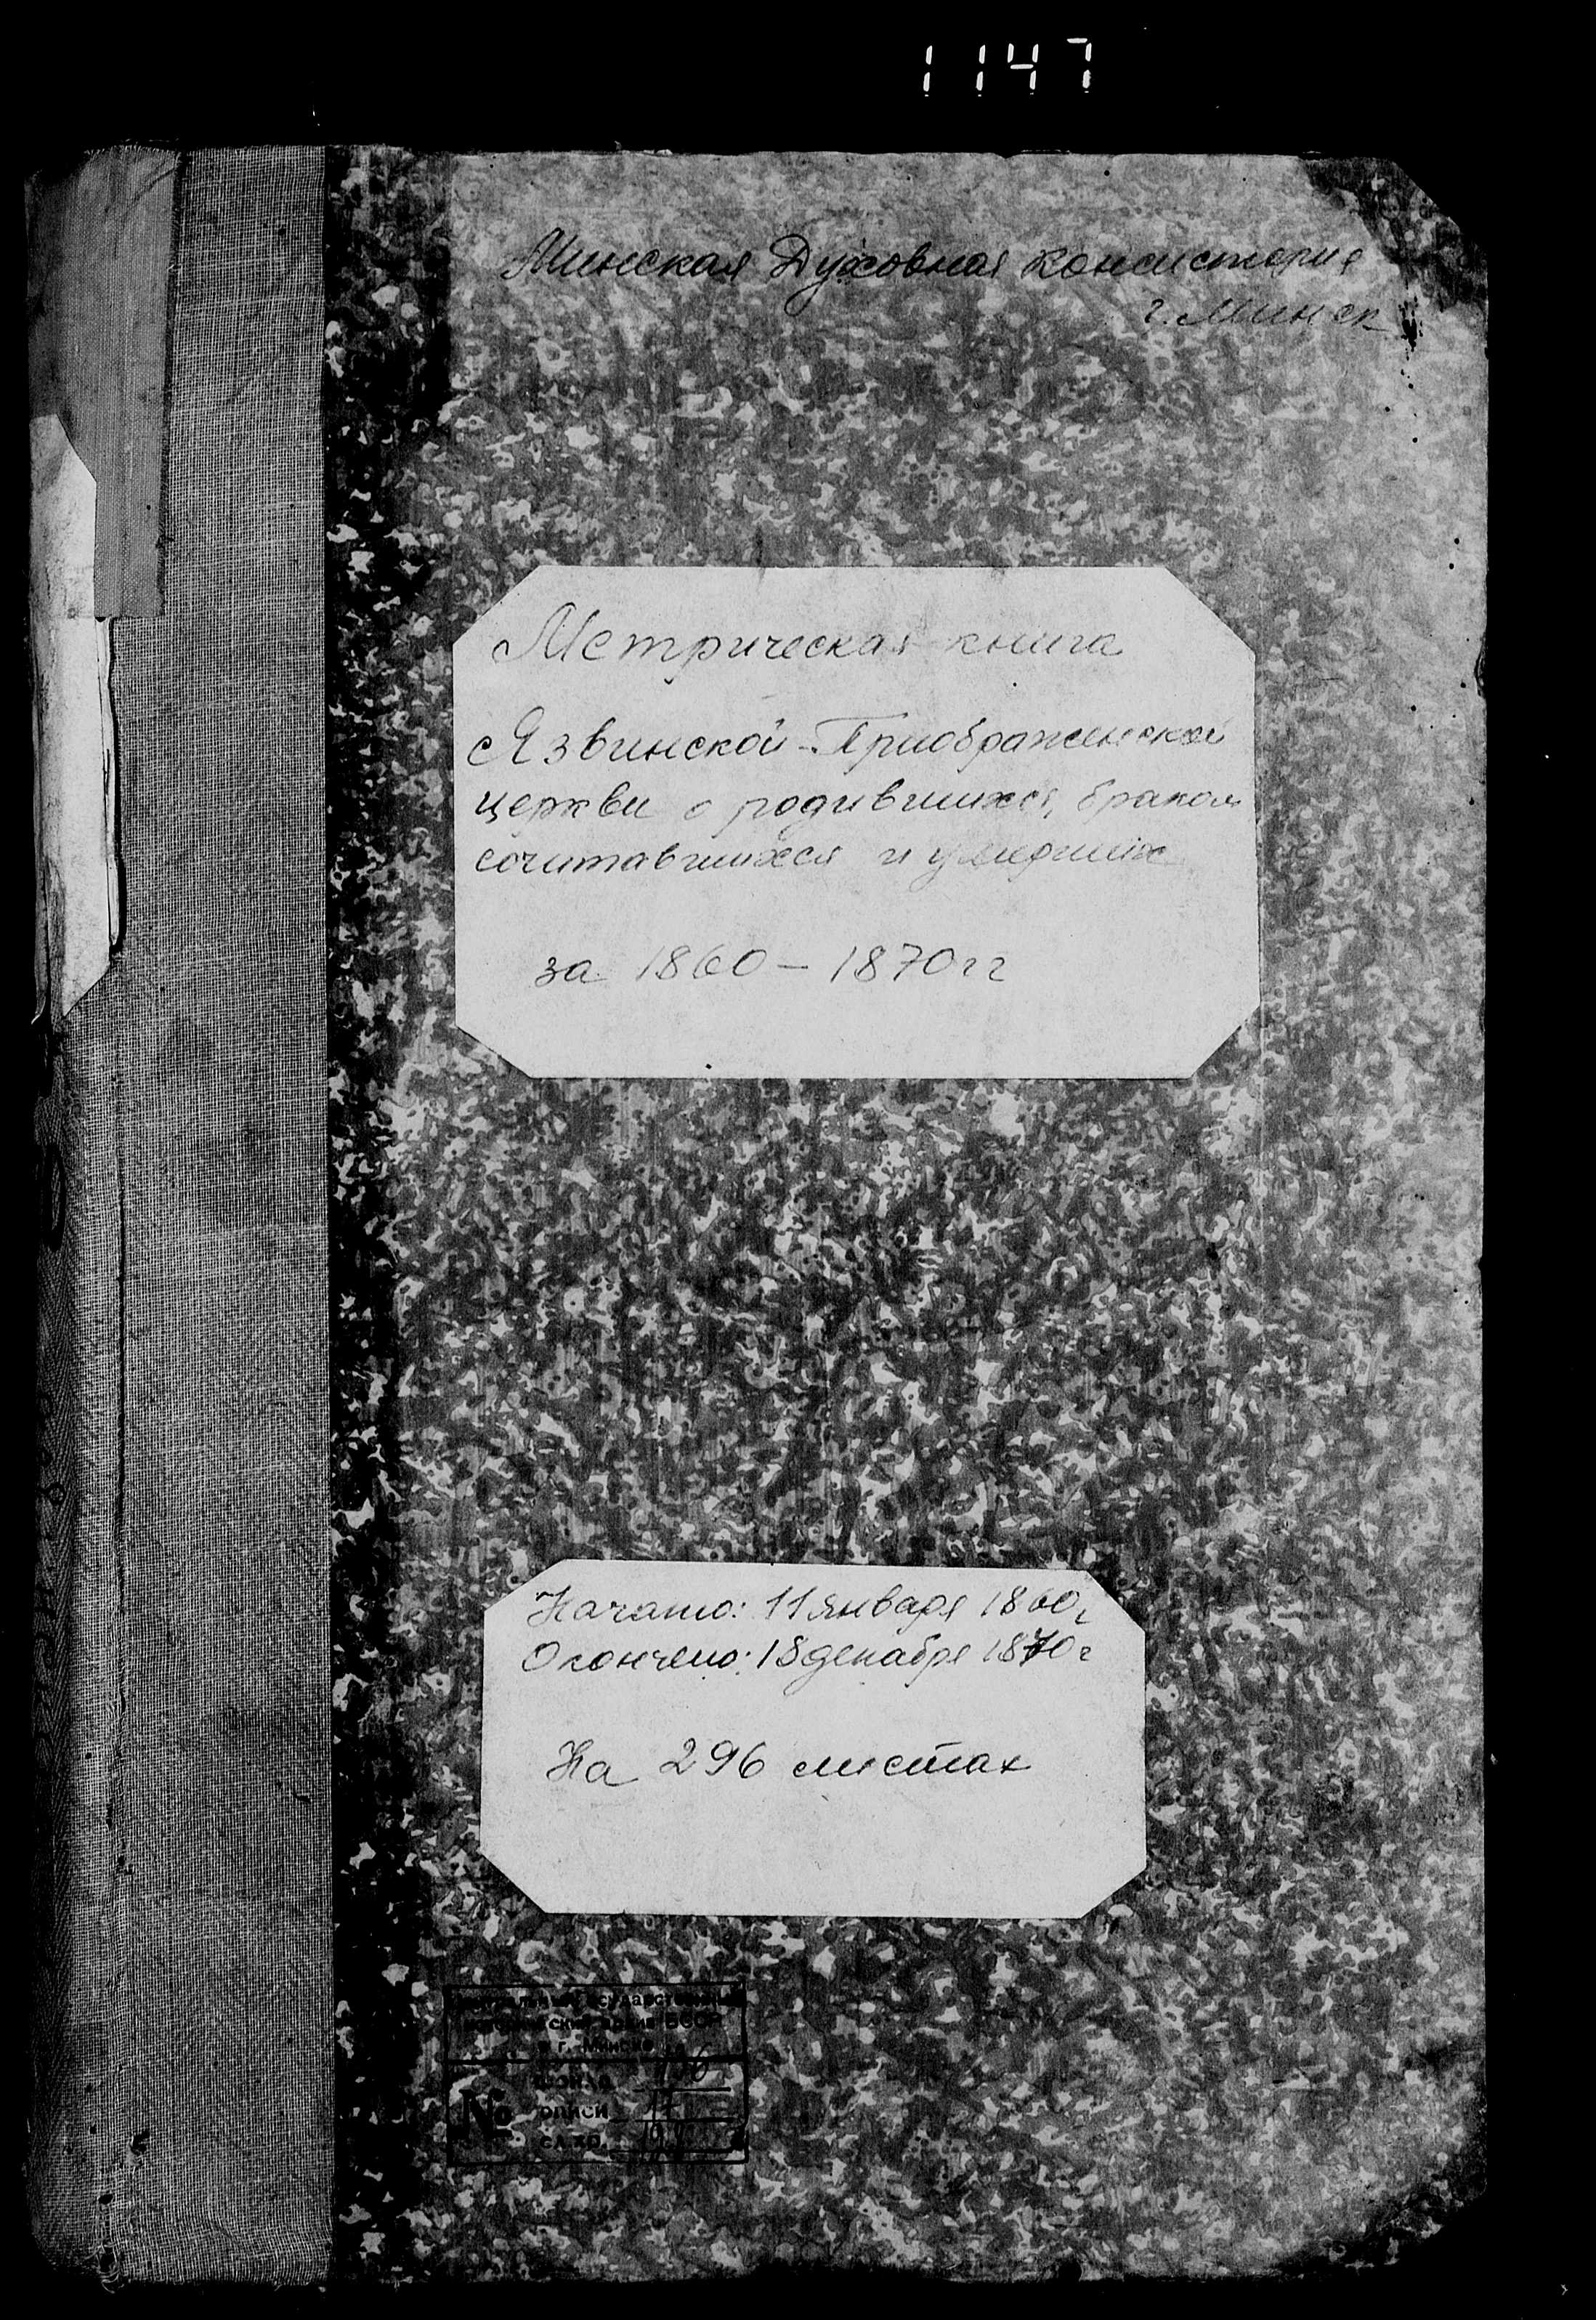 1147
Минская Духовная консистория
г. Минск
Метрическая книга
Язвинской-Приображенской
церкви о родившихся, браком
сочитавшихся и умерших
за 1860 – 1870 гг
Начато: 11 января 1860 г
Окончено: 18 декабря 1870 г
На 296 листах
г. Минске
фонд
№ описи 17
ед.хр.